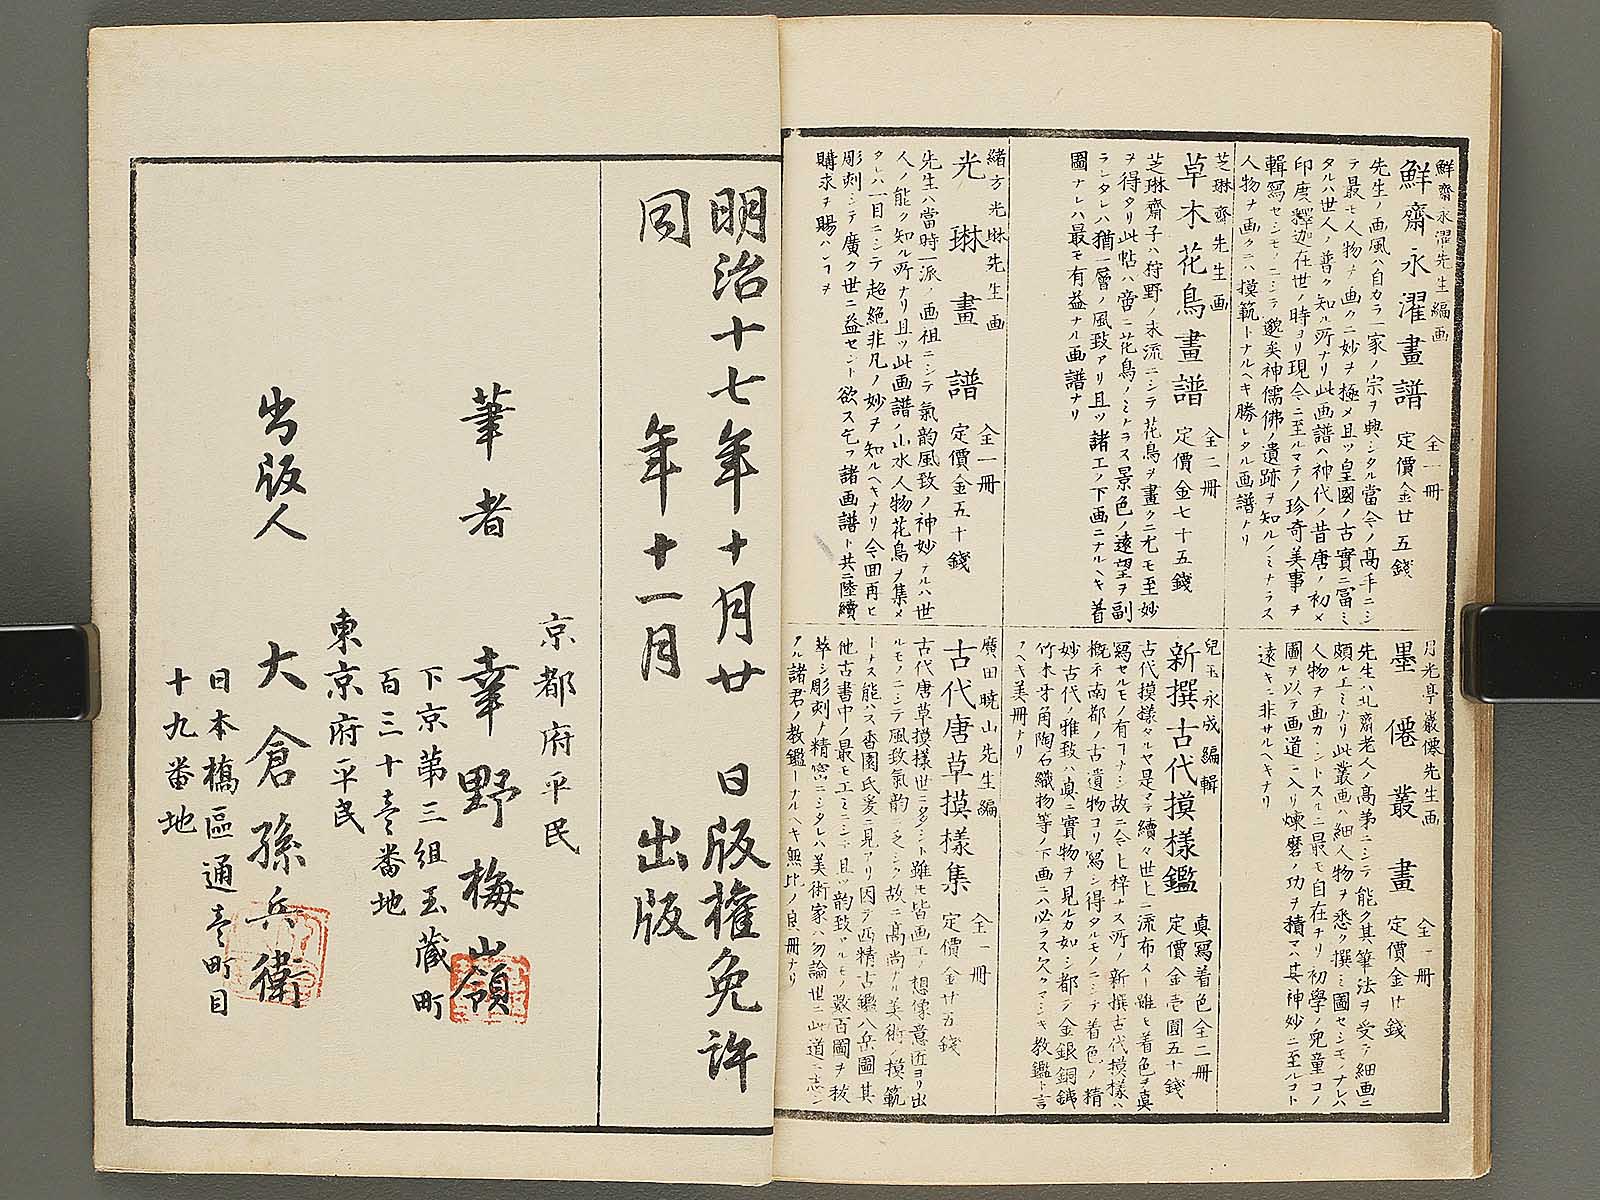 鮮齋永濯先生編画
鮮齋永濯畫譜
全一冊
定價金廿五錢
先生ノ画風ハ自カラ一家ノ宗ヲ興シタル當今ノ高手ニシ
テ最モ人物ヲ画クニ妙ヲ極メ且ツ皇國ノ古實ニ富ミ
タルハ世人ノ普ク知ル所ナリ此画譜ハ神代ノ昔唐ノ初メ
印度釋迦在世ノ時ヨリ現今ニ至ルマテノ珍奇美事ヲ
輯寫セシモノニシテ邈矣神儒佛ノ遺跡ヲ知ルノミナラス
人物ヲ画クニハ摸範トナルヘキ勝レタル画譜ナリ
芝琳齊先生画
草木花鳥畫譜
全二冊
定價金七十五錢
芝琳齋子ハ狩野ノ末流ニシテ花鳥ヲ畫クニ尤モ至妙
ヲ得タリ此帖ハ啻ニ花鳥ノミナラス景色ノ遠望ヲ副
ラシタレハ猶一層ノ風致アリ且ツ諸工ノ下画ニナルヘキ着
圖ナレハ最モ有益ナル画譜ナリ
緒方光琳先生画
光琳畫譜
全一冊
定價金五十錢
先生ハ當時一派ノ画祖ニシテ氣韵風致ノ神妙ナルハ世
人ノ能ク知ル所ナリ且ツ此画譜ノ山水人物花鳥ヲ集メ
タレハ一目ニシテ超絶非凡ノ妙ヲ知ルヘキナリ今回再ヒ
彫刻シテ廣ク世ニ益セント欲ス乞フ諸画譜ト共ニ陸續
購求ヲ賜ハンヿヲ
月光亭巖僊先生画
墨僊叢畫
全一冊
定價金廿錢
先生ハ北齋老人ノ高弟ニシテ能ク其筆法ヲ受テ細画ニ
頗ル工ミナリ此叢画ハ細人物ヲ悉ク撰ミ圖セシモノナレハ
人物ヲ画カントスルニ最モ自在ナリ初學ノ兒童コノ
圖ヲ以テ画道ニ入リ煉磨ノ功ヲ積マハ其神妙ニ至ルコト
遠キニ非サルヘキナリ
兒玉永成編輯
新撰古代摸樣鑑
眞寫着色全二冊
定價金壱圓五十錢
古代摸樣タルヤ是マテ續々世上ニ流布スト雖モ着色ヲ眞
寫セルモノ有ヿナシ故ニ今上梓ナス所ノ新撰古代摸樣ハ
概子南都ノ古遺物ヨリ寫シ得タルモノニシテ着色ノ精
妙古代ノ雅致ハ眞ニ實物ヲ見ルカ如シ都テ金銀銅鐵
竹木牙角陶石織物等ノ下画ニハ必ラス欠クマシキ教鑑ト言
フヘキ美冊ナリ
廣田曉山先生編
古代唐草摸樣集
全一冊
定價金廿五錢
古代唐草摸樣世ニ多シト雖モ皆画工ノ想像意匠ヨリ出
ルモノニシテ風致氣韵ニ乏シク故ニ高尚ナル美術ノ摸範
トナス能ハス香園氏爰ニ見アリ因テ西精古鑑八岳圖其
他古書中ノ最モ工ミニシテ且ツ韵致アルモノ数百圖ヲ抜
萃シ彫刻ノ精密ニシタレハ美術家ハ勿論世ニ此道ニ志シ
アル諸君ノ教鑑トナルヘキ無比ノ良冊ナリ
明治十七年十月廿 日版權免許
同 年十一月 出版
京都府平民
筆者 幸野楳嶺
下京第三組玉蔵町
百三十壱番地
東京府平民
出版人 大倉孫兵衛
日本橋區通壱町目
十九番地